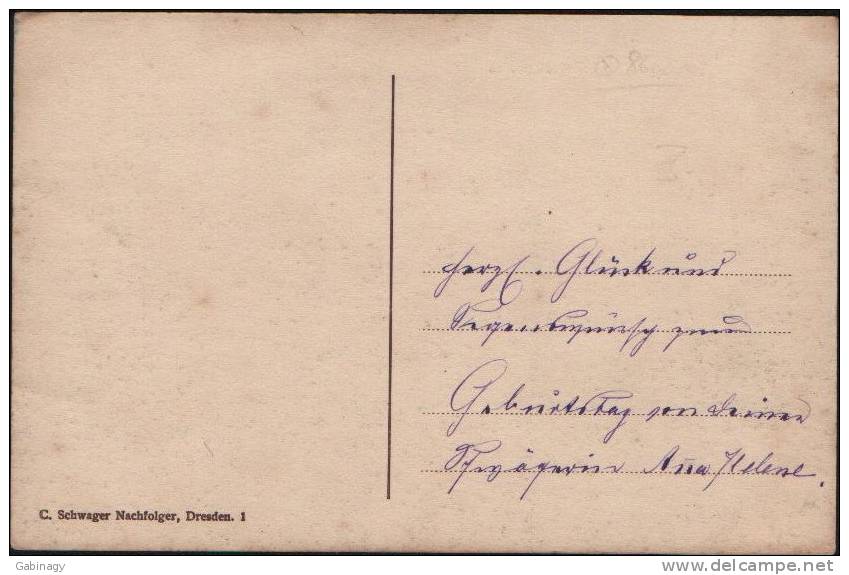 herzl. Glück und
Segenswunsch zum
Geburtstag von deiner
Schwägerin Anna Helene.
C. Schwager Nachfolger, Dresden. 1
Gabinagy
www.delcampe.net